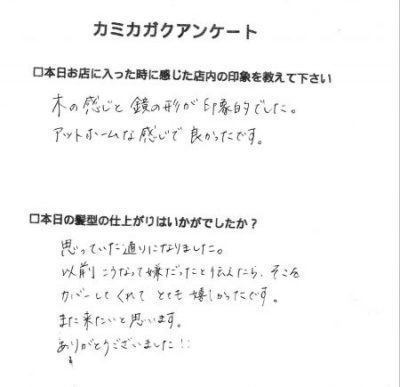 カミカガクアンケート
□本日お店に入った時に感じた店内の印象を教えて下さい
木の感じと鏡の形が印象的でした。
アットホームな感じで良かったです。
□本日の髪型の仕上がりはいかがでしたか？
思っていた通りになりました。
以前こうなって嫌だったと伝えたら、そこを
カバーしてくれてとても嬉しかったです。
また来たいと思います。
ありがとうございました!!